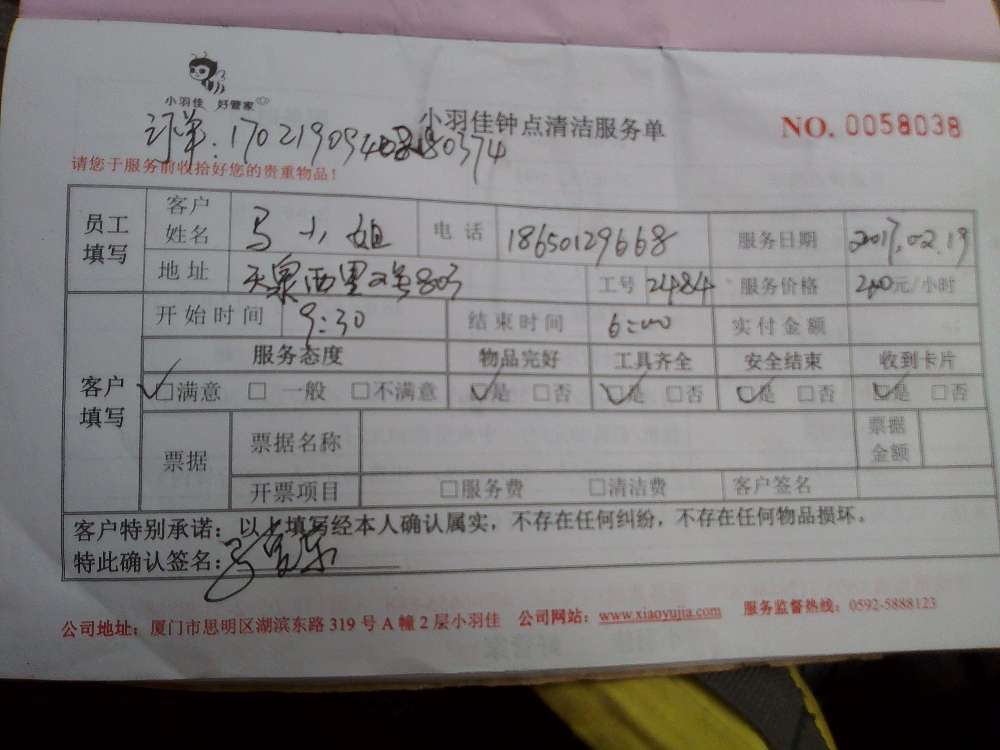 小羽佳 好管家
小羽佳钟点清洁服务单
NO. 0058038
订单:
请您于服务前收拾好您的贵重物品!
员工填写 客户姓名 马小姐 电话 18650129668 服务日期 2017.02.19
地址 天泉西里 803 工号 2484 服务价格 元/小时
客户填写 开始时间 9:30 结束时间 6:00 实付金额
服务态度 物品完好 工具齐全 安全结束 收到卡片
☑满意 □一般 □不满意 ☑是 □否 ☑是 □否 ☑是 □否 ☑是 □否
票据 票据名称 票据金额
开票项目 □服务费 □清洁费 客户签名
客户特别承诺:以上填写经本人确认属实,不存在任何纠纷,不存在任何物品损坏。
特此确认签名:
公司地址:厦门市思明区湖滨东路 319 号 A 幢 2 层小羽佳 公司网站:www.xiaoyujia.com 服务监督热线:0592-5888123